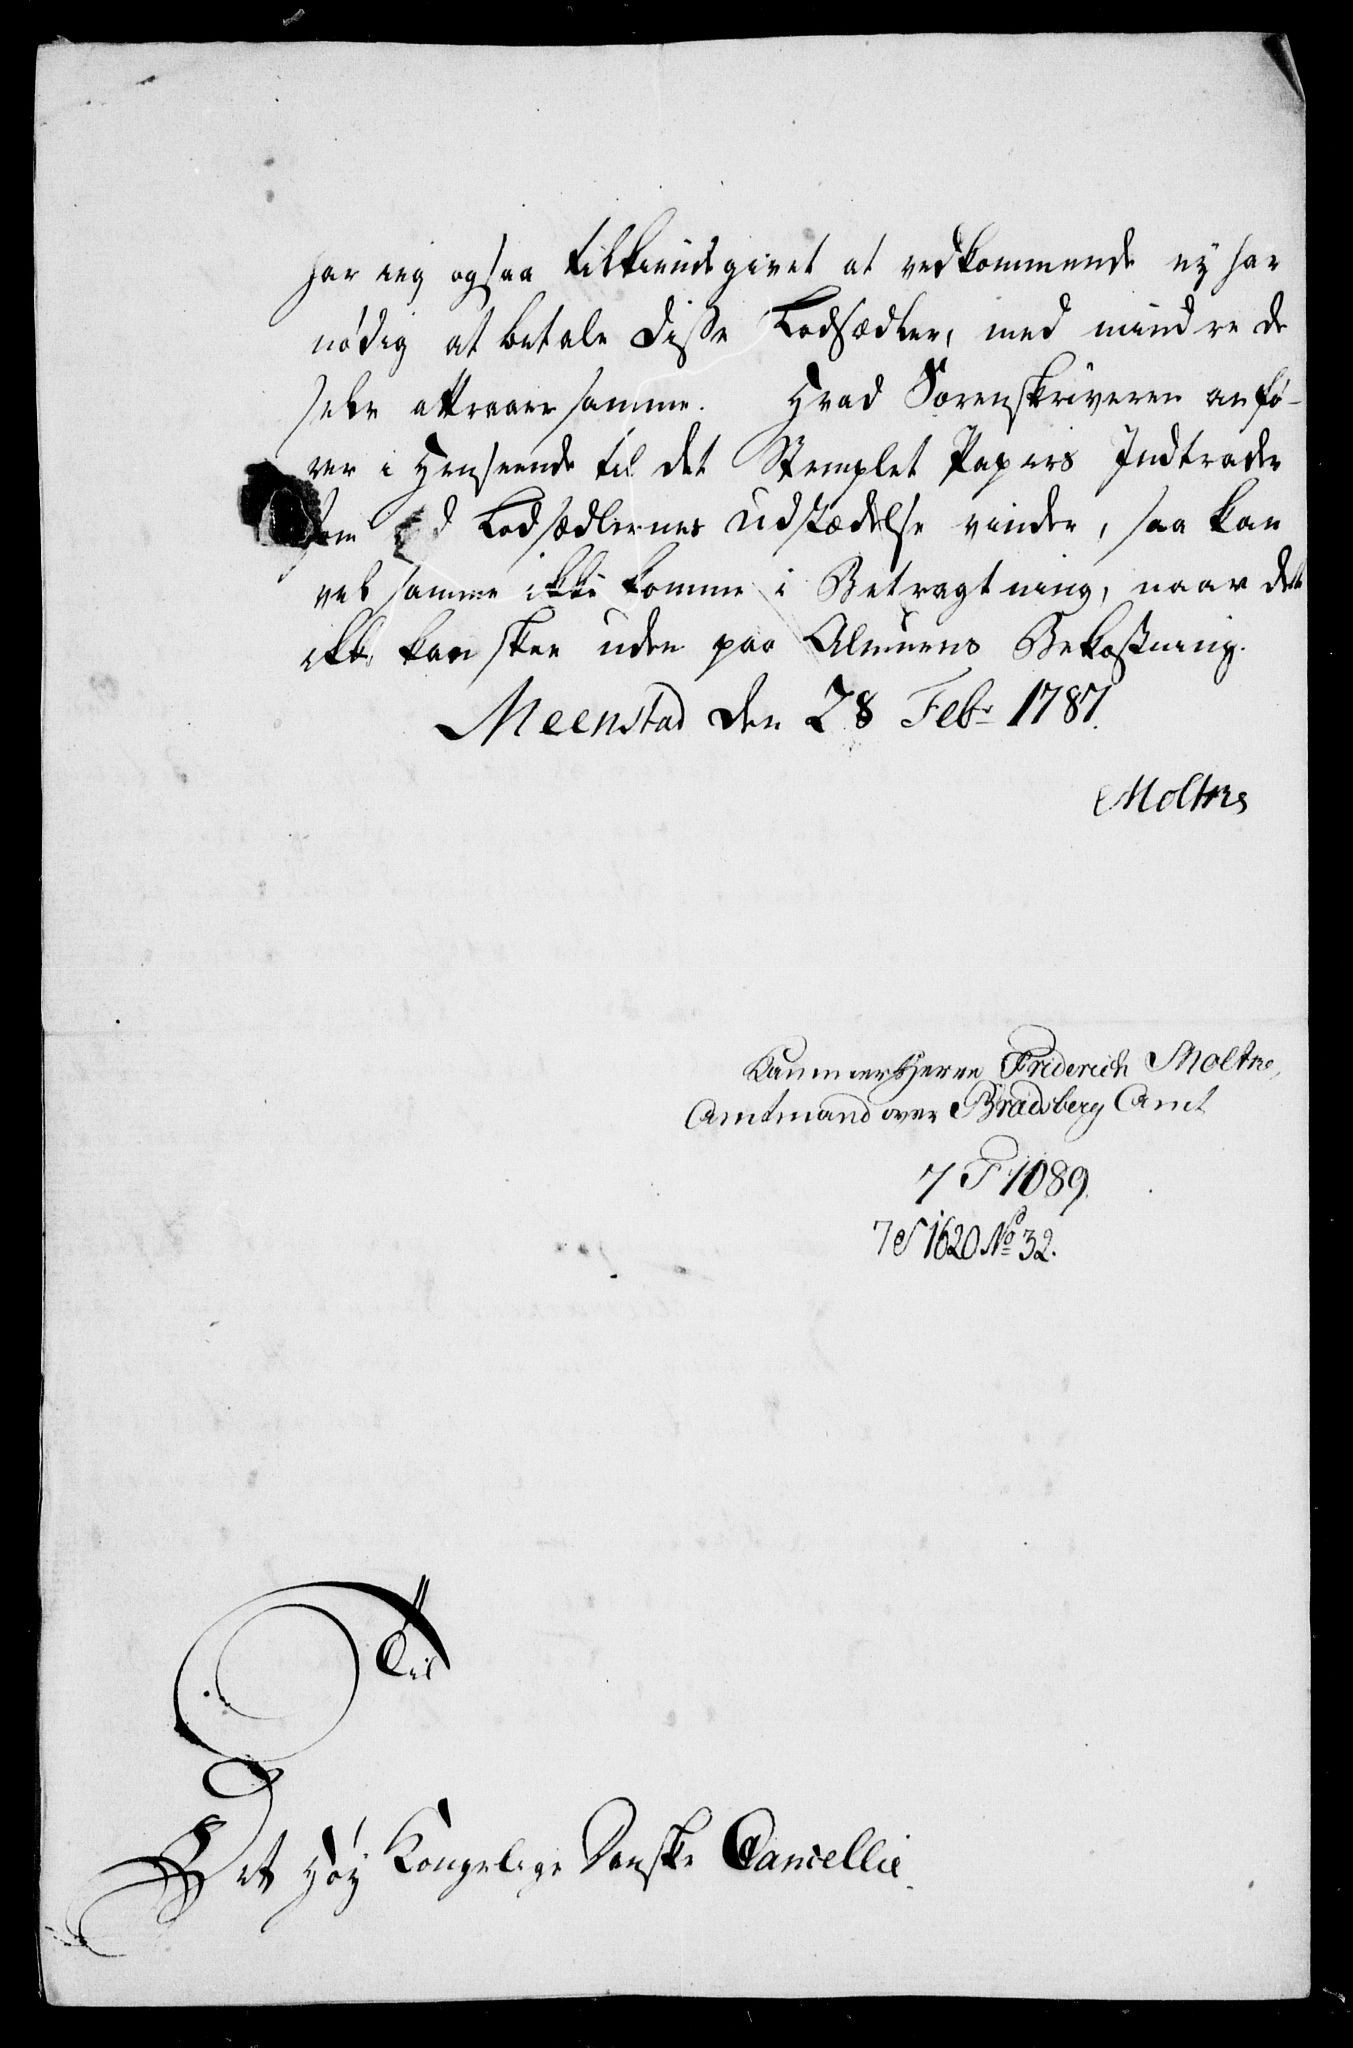 har ieg ogsaa tilkiendegivet at vedkommende ey har
nødig at betale disse Lodsædler, med mindre de
selv attraaer samme. Hvad Sorenskriveren anfø-
rer i Henseende til det Stemplet Papiirs Indtrader
som ved Lodsædlernes Udstædelse vinder, saa kan
vel samme ikke komme i Betragtning, naar det
ikke kan skee uden paa Almuens Bekostning.
Meenstad den 28 Febr 1787.
Moltke
Kammerherre Friderich Moltke,
Amtmand over Bradsberg Amt
7 T 1089.
7 S 1620 No 32.
Til
Det Høy Kongelige Danske Cancellie.